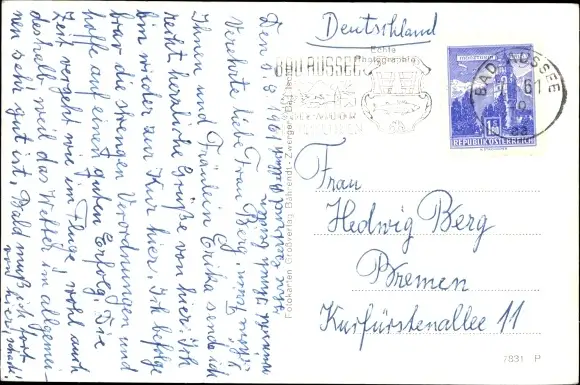 Den 9. 8. 1961
Verehrte, liebe Frau Berg,
Ihnen und Fräulein Erika sende ich
recht herzliche Grüße von hier. Ich
bin wieder zur Kur hier. Ich befolge
brav die strengen Verordnungen und
hoffe auf einen guten Erfolg. Die
Zeit vergeht wie im Fluge, wohl auch
deshalb weil das Wetter im allgemei-
nen sehr gut ist. Bald muß ich fort
von hier! schade!
Ihre Gertrud
Deutschland
Echte
Photographie
BAD AUSSEE
BAD AUSSEE
61
REPUBLIK ÖSTERREICH
Frau
Hedwig Berg
Bremen
Kurfürstenallee 11
7831 P
Fotokarten Großverlag Bährendt - Zwerger, Bad Ischl